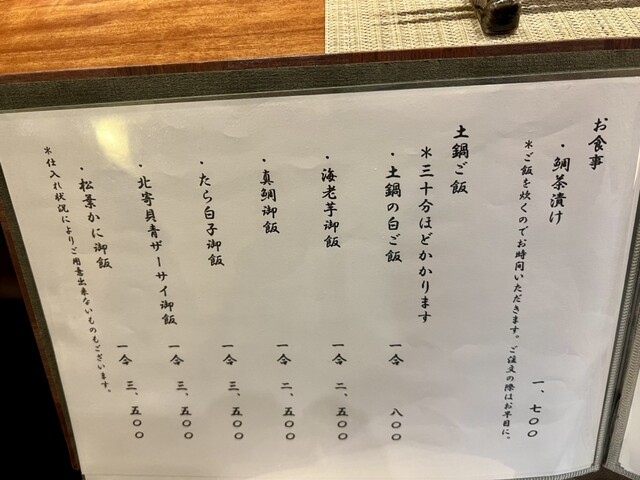 お食事
・鯛茶漬け 一、七〇〇
＊ご飯を炊くのでお時間いただきます。ご注文の際はお早目に。
土鍋ご飯
＊三十分ほどかかります
・土鍋の白ご飯 一合 八〇〇
・海老芋御飯 一合 二、五〇〇
・真鯛御飯 一合 二、五〇〇
・たら白子御飯 一合 三、五〇〇
・北寄貝青ザーサイ御飯 一合 三、五〇〇
・松葉かに御飯 一合 三、五〇〇
＊仕入れ状況によりご用意出来ないものもございます。